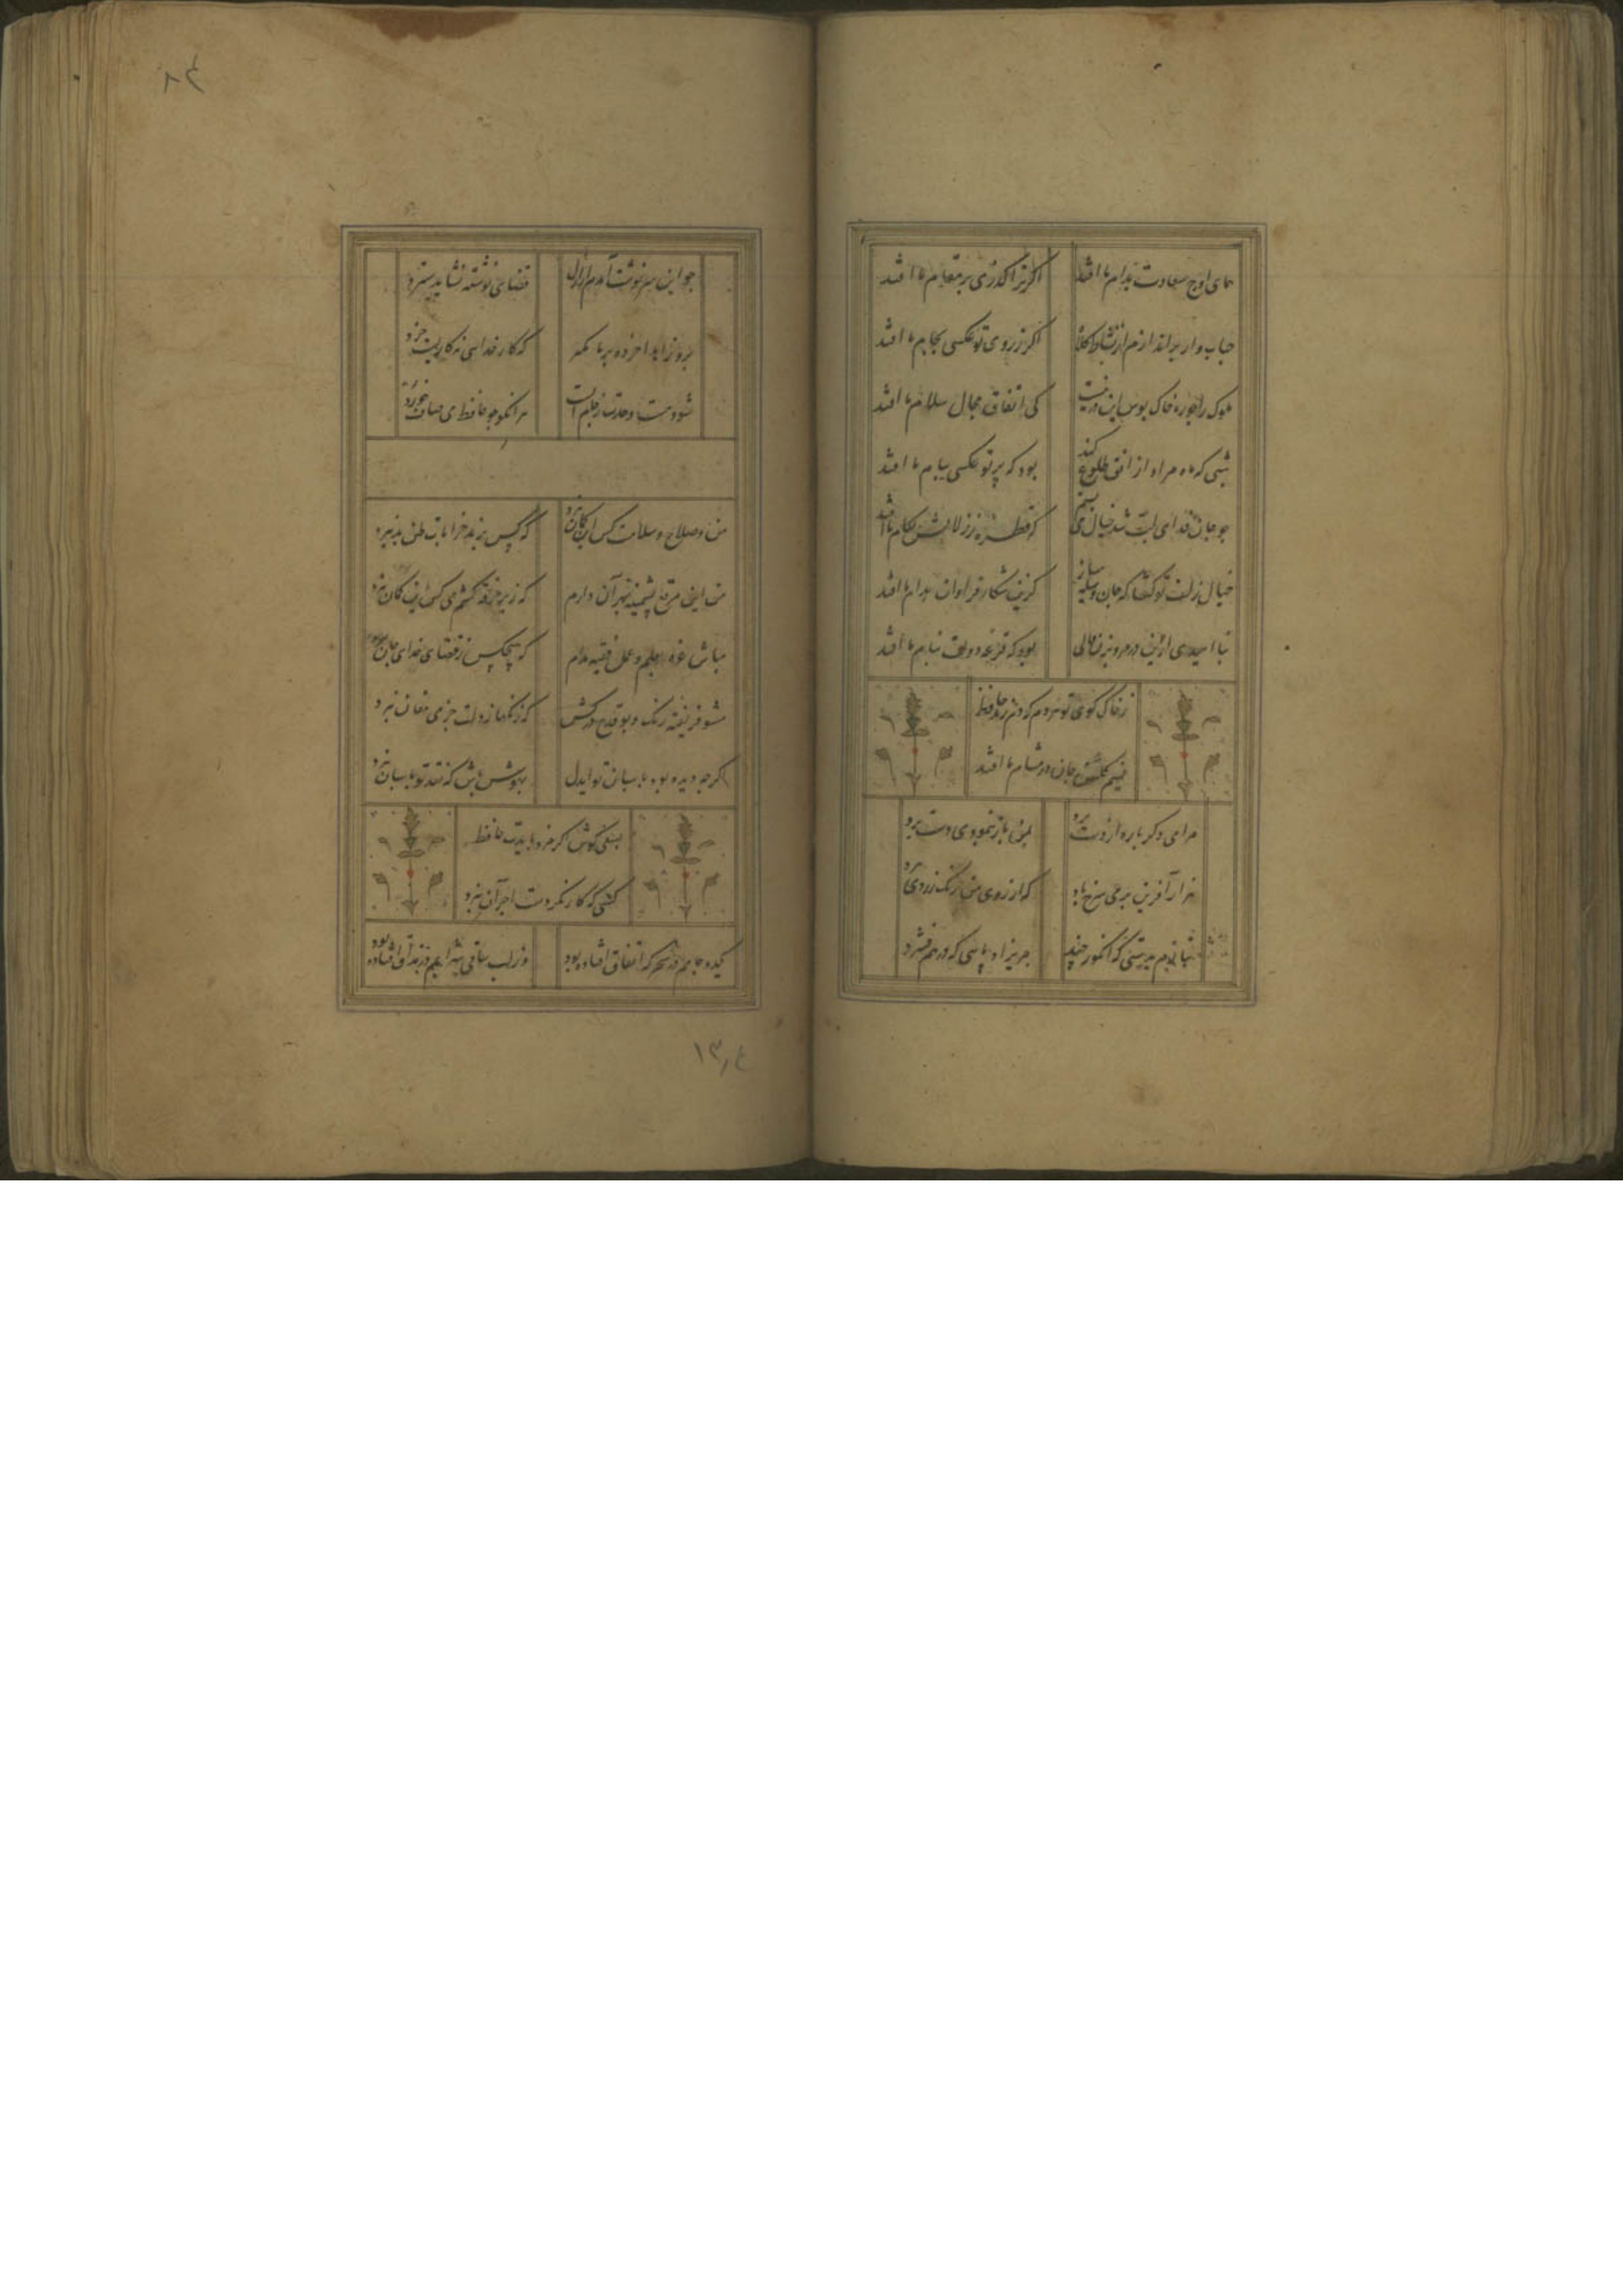 همای اوج سعادت بدام ما افتد اگر ترا گذری بر مقام ما افتد
حباب وار براندازم از نشاط کلاه اگر ز روی تو عکسی بجام ما افتد
ملوک را چو ره خاک بوس این در نیست کی اتفاق مجال سلام ما افتد
شبی که ماه مراد از افق طلوع کند بود که پرتو عکسی ببام ما افتد
جو جان فدای لبت شد خیال می بستم که قطره ز زلالش بکام ما افتد
خیال زلف تو گفتا که جان وسیله مساز کزین شکار فراوان بدام ما افتد
نا امیدی ازین در مرو بزن فالی بود که قرعه دولت بنام ما افتد
ز خاک کوی تو هر دم که دم زند حافظ
نسیم گلشن جان در مشام ما افتد
مرا می دکر باره از دست برد بمن باز نمود می دست برد
هزار آفرین بر می سرخ باد که از روی من رنک زردی برد
بنازیم دستی که انکور چید مریزاد پایی که در هم فشرد
جو این سرنوشت آمدم از ازل قضای نوشته نشاید سترد
برو زاهدا خرده بر ما مکیر که کار خدایی نه کاریست خرد
شود مست وحدت ز جام الست هر انکو جو حافظ می صاف خورد
من و صلاح و سلامت کس این کمان نبرد که کس برند خرابات ظن بد نبرد
من این مرقع پشمینه بهر آن دارم که زیر خرقه کشم می کس این کمان نبرد
مباش غره بعلم و عمل فقیه مدام که هیچکس ز قضای خدای جان نبرد
مشو فریفته رنک و بو قدح درکش که زنک غم ز دلت جز می مغان نبرد
اکر جه دیده بود پاسبان تو ایدل بهوش باش که نقد تو پاسبان نبرد
بسعی کوش اکر مزد بایدت حافظ
کسی که کار نکرد دست اجر آن نبرد
یکدو جامم دی سحر که اتفاق افتاده بود وز لب ساقی شرابم در مذاق افتاده بود